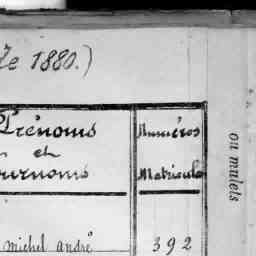 de 1880.)
Prénoms
et
Surnoms
Numéros
Matricule
michel andré
392
ou mulets